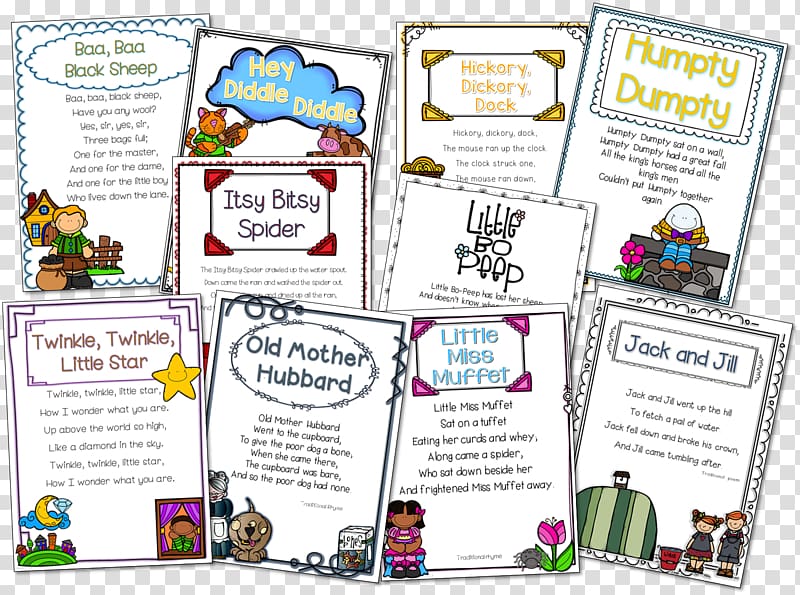 Baa, Baa
Black Sheep
Baa, baa, black sheep,
Have you any wool?
Yes, sir, yes, sir,
Three bags full;
One for the master,
And one for the dame,
And one for the little boy
Who lives down the lane.
Hey
Diddle Diddle
Hickory,
Dickory,
Dock
Hickory, dickory, dock,
The mouse ran up the clock.
The clock struck one,
The mouse ran down,
Humpty
Dumpty
Humpty Dumpty sat on a wall,
Humpty Dumpty had a great fall
All the king's horses and all the
king's men
Couldn't put Humpty together
again
Itsy Bitsy
Spider
The Itsy Bitsy Spider crawled up the water spout,
Down came the rain and washed the spider out.
Out came the sun and dried up all the rain,
Little
Bo
Peep
Little Bo-Peep has lost her sheep
And doesn't know where
Twinkle, Twinkle,
Little Star
Twinkle, twinkle, little star,
How I wonder what you are.
Up above the world so high,
Like a diamond in the sky.
Twinkle, twinkle, little star,
How I wonder what you are.
Old Mother
Hubbard
Old Mother Hubbard
Went to the cupboard,
To give the poor dog a bone,
When she came there,
The cupboard was bare,
And so the poor dog had none
Traditional rhyme
Bones
Little
Miss
Muffet
Little Miss Muffet
Sat on a tuffet
Eating her curds and whey,
Along came a spider,
Who sat down beside her
And frightened Miss Muffet away.
Traditional rhyme
Jack and Jill
Jack and Jill went up the hill
To fetch a pail of water
Jack fell down and broke his crown,
And Jill came tumbling after
Traditional poem